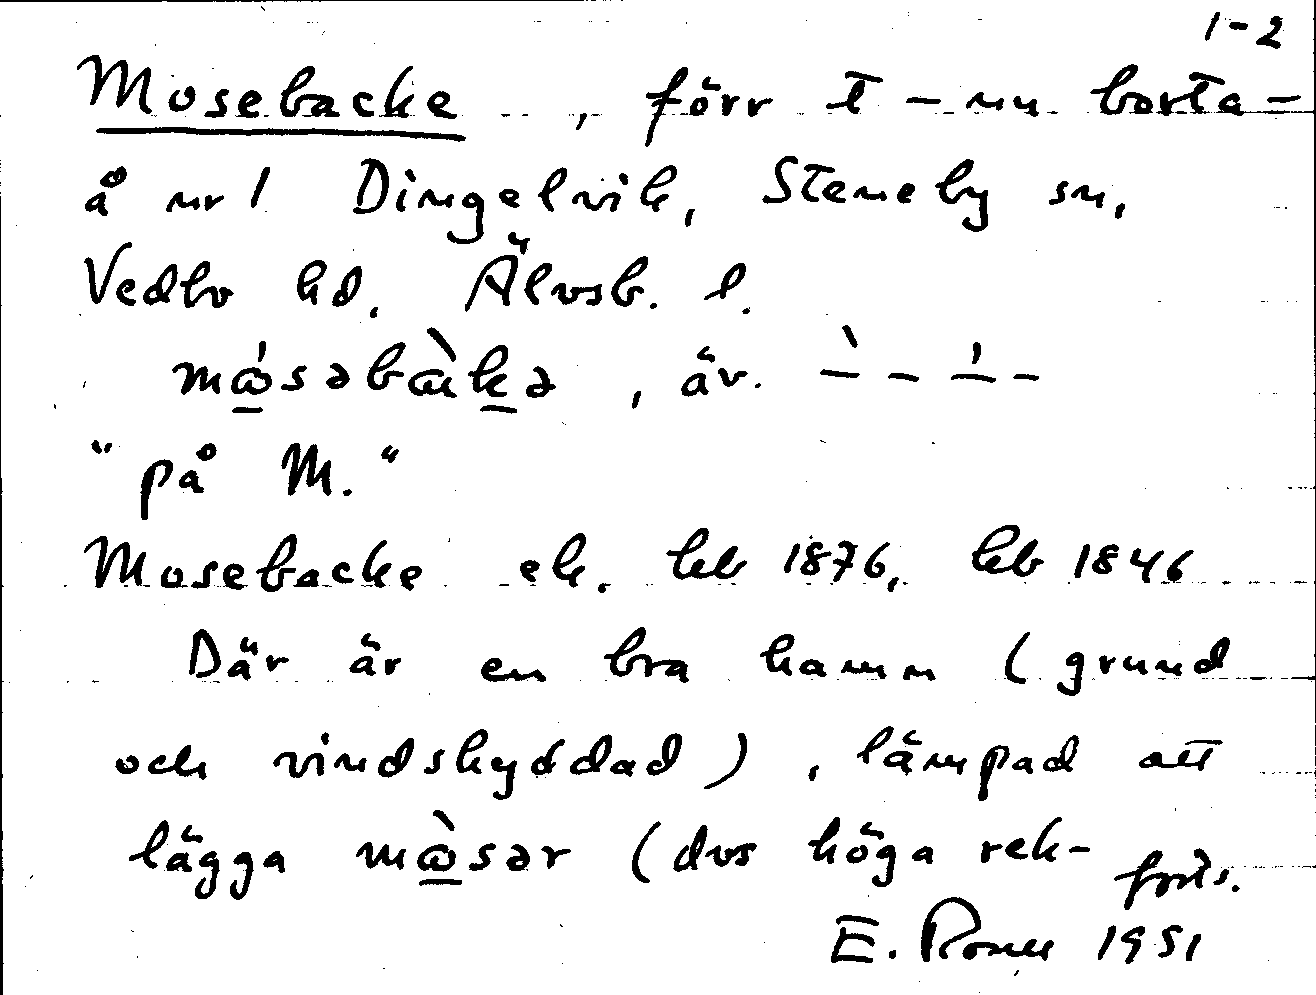 1-2
Mosebacke, förr t - nu borta -
å nr 1 Dingelvik, Steneby sn,
Vedbo hd, Älvsb. l.
"på M."
Mosebacke ek. hb 1876, hb 1846
Där är en bra hamn (grund
och vindskyddad), lämpad att
lägga (dvs höga rek-
forts.
E. 1951